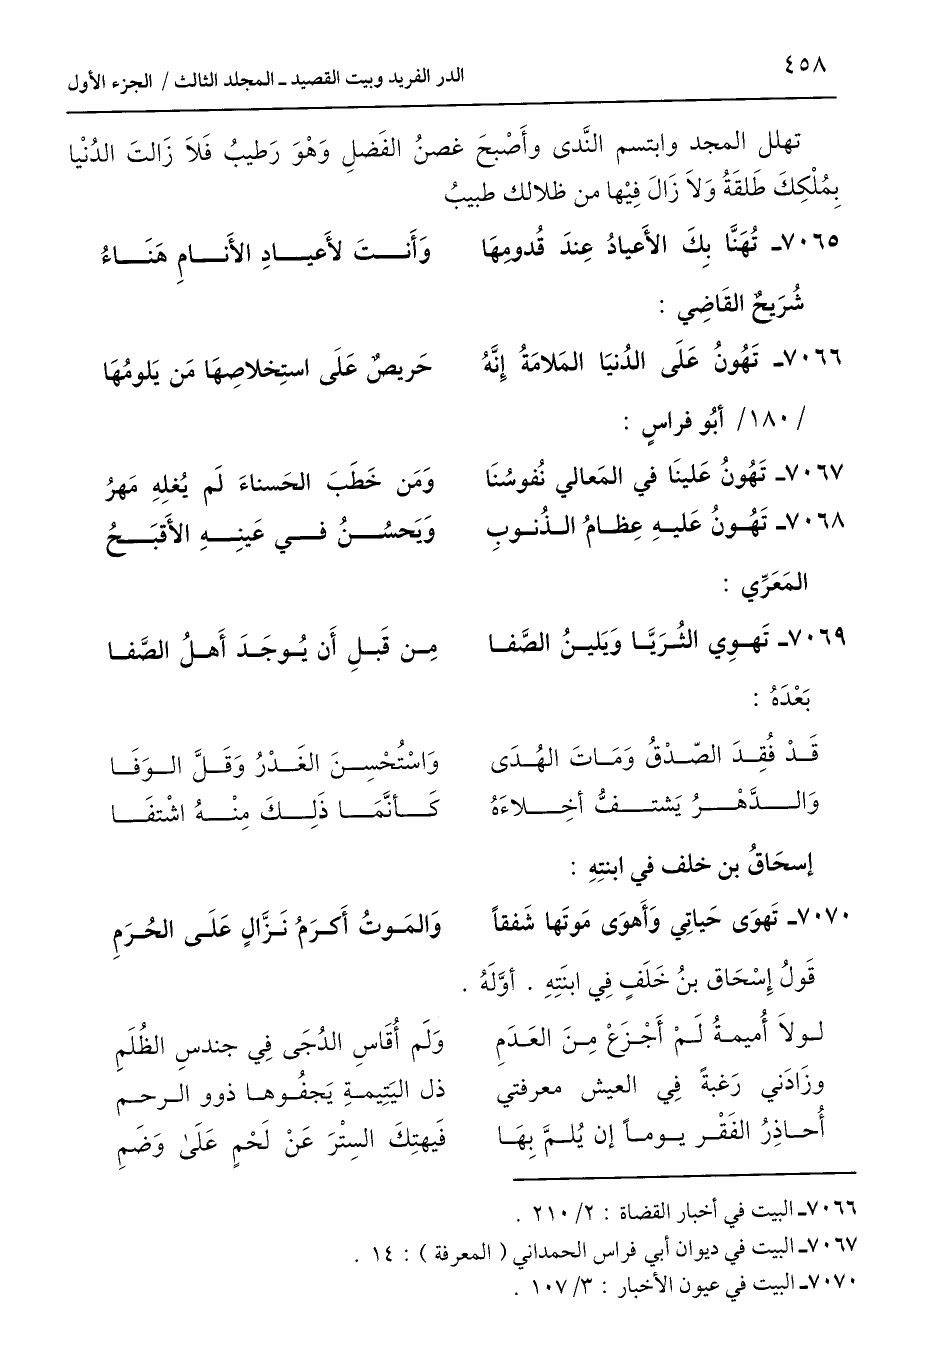 ٤٥٨
الدر الفريد وبيت القصيد ـ المجلد الثالث / الجزء الأول
تهلل المجد وابتسم النَّدى وأَصْبحَ غصنُ الفَضلِ وَهْوَ رَطيبُ فَلاَ زَالتَ الدُنْيا
بِمُلْكِكَ طَلقَةُ وَلاَ زَالَ فِيْها من ظلالك طبيبُ
٧٠٦٥ـ تُهَنَّا بِكَ الأَعيادُ عِندَ قُدومِهَا وَأَنـتَ لأَعيـادِ الأَنـامِ هَنَـاءُ
شُرَيحٌ القَاضِي :
٧٠٦٦ـ تَهُونُ عَلَى الدُنيَا المَلامَةُ إِنَّهُ حَريصٌ عَلَى استِخلاصِهَا مَن يَلومُهَا
/ ١٨٠/ أبُو فراسٍ :
٧٠٦٧ـ تَهُونُ عَلينَا في المَعالي نُفوسُنَا وَمَن خَطَبَ الحَسناءَ لَم يُغلِهِ مَهرُ
٧٠٦٨ـ تَهُـونُ عَليـهِ عِظـامُ الـذُنـوبِ وَيَحسُـنُ فـي عَينِـهِ الأَقبَـحُ
المَعَرِّي :
٧٠٦٩ـ تَهـوِي الثُـرَيَّـا وَيَليـنُ الصَّفـا مِـن قَبـلِ أَن يُـوجَـدَ أَهـلُ الصَّفـا
بَعْدَهُ :
قَـدْ فُقِـدَ الصّـدْقُ وَمَـاتَ الهُـدَى وَاسْتُحْسِـنَ الغَـدْرُ وَقَـلَّ الـوَفَـا
وَالـدَّهْـرُ يَشتـفُّ أخِـلاءَهُ كَـأنَّمَـا ذَلِـكَ مِنْـهُ اشْتفَـا
إسحَاقُ بن خلف في ابنتِهِ :
٧٠٧٠ـ تَهوَى حَياتِي وَأَهوَى مَوتَها شَفقاً وَالمَـوتُ أَكـرَمُ نَـزَّالٍ عَلَـى الحُـرَمِ
قَولُ إسْحَاق بنُ خَلَفٍ فِي ابنَتِهِ . أوَّلَهُ .
لـولاَ أُميمـةُ لَـمْ أَجْـزَعْ مِـنَ العَـدَمِ وَلَم أُقَاسِ الدُجَى فِي جندسِ الظُلَمِ
وزَادَني رَغبةً فِي العيش معرفتي ذل اليَتِيمـةِ يَجفُـوهـا ذوو الـرحـم
أُحـاذِرُ الفَقْـر يـومـاً إن يُلـمَّ بِهَـا فَيهتِكَ السِترَ عَنْ لَحْمٍ عَلَىٰ وَضَمِ
٧٠٦٦ـ البيت في أخبار القضاة : ٢/ ٢١٠ .
٧٠٦٧ـ البيت في ديوان أبي فراس الحمداني ( المعرفة ) : ١٤ .
٧٠٧٠ـ البيت في عيون الأخبار : ٣/ ١٠٧ .